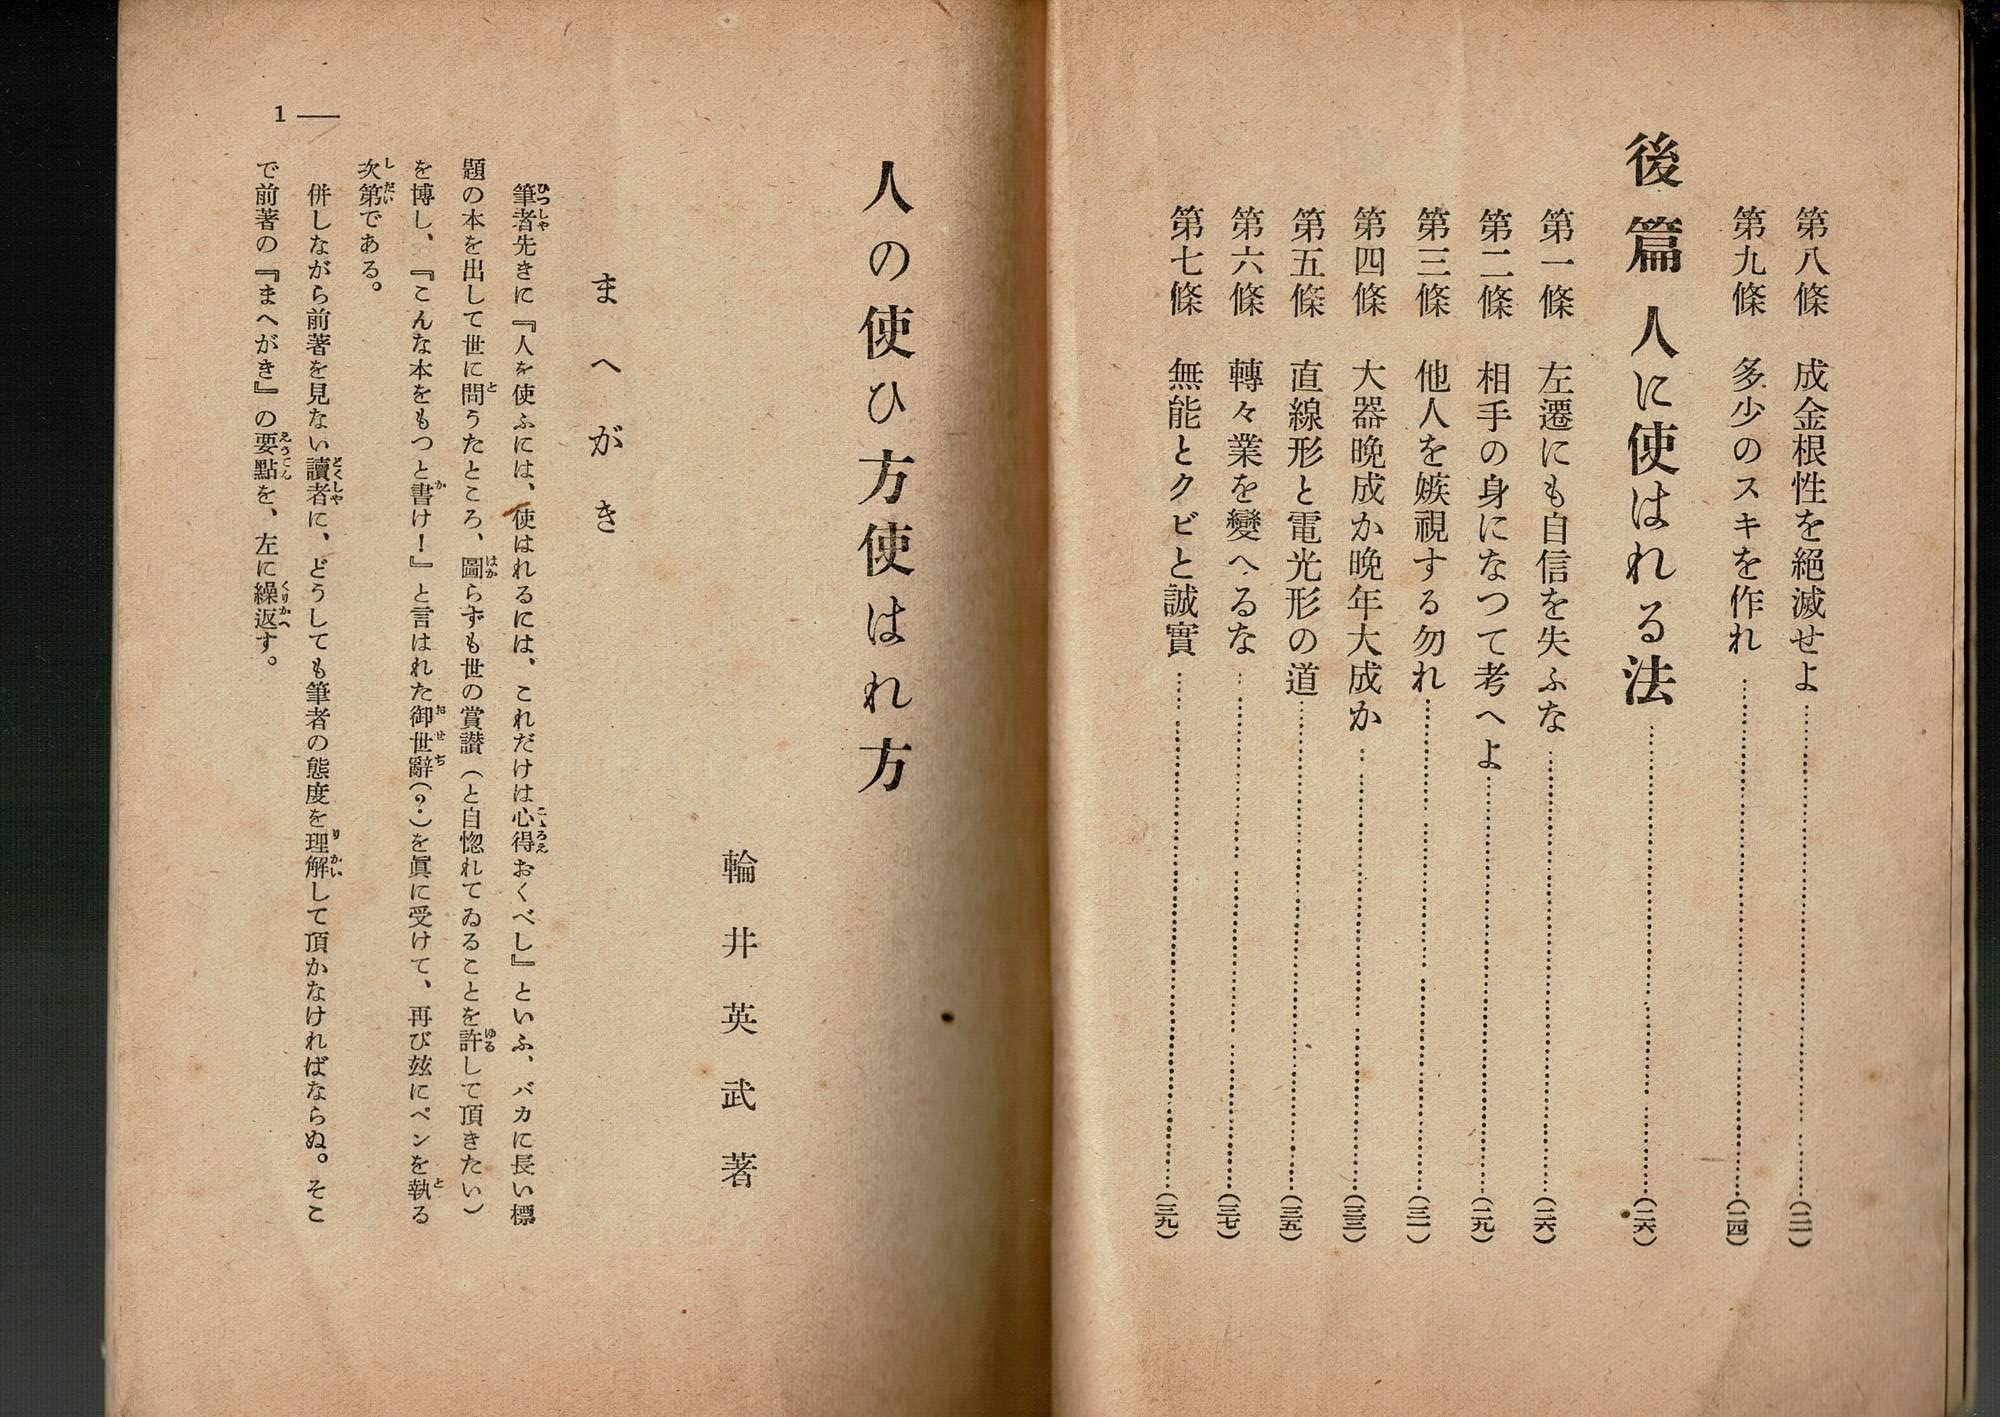 第八條　成金根性を絕滅せよ……(二二)
第九條　多少のスキを作れ……(二四)
後篇　人に使はれる法……(二六)
第一條　左遷にも自信を失ふな……(二六)
第二條　相手の身になつて考へよ……(二九)
第三條　他人を嫉視する勿れ……(三一)
第四條　大器晚成か晚年大成か……(三三)
第五條　直線形と電光形の道……(三五)
第六條　轉々業を變へるな……(三七)
第七條　無能とクビと誠實……(三九)
人の使ひ方使はれ方
輪井英武著
まへがき
筆者先きに『人を使ふには、使はれるには、これだけは心得おくべし』といふ、バカに長い標
題の本を出して世に問うたところ、圖らずも世の賞讃（と自惚れてゐることを許して頂きたい）
を博し、『こんな本をもつと書け！』と言はれた御世辭(？)を眞に受けて、再び玆にペンを執る
次第である。
併しながら前著を見ない讀者に、どうしても筆者の態度を理解して頂かなければならぬ。そこ
で前著の『まへがき』の要點を、左に繰返す。
1